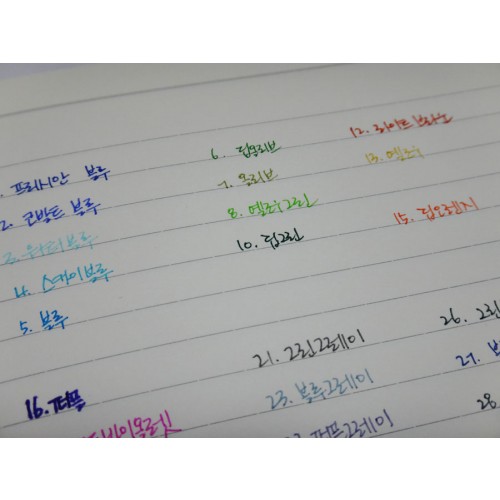 1. 프러시안 블루
2. 코발트 블루
3. 워터블루
4. 스카이블루
5. 블루
6. 딥올리브
7. 올리브
8. 옐로우그린
10. 딥그린
12. 라이트 브라운
13. 옐로우
15. 딥오렌지
16. 퍼플
바이올렛
21. 그린그레이
23. 블루그레이
퍼플그레이
26. 그린
27.
28